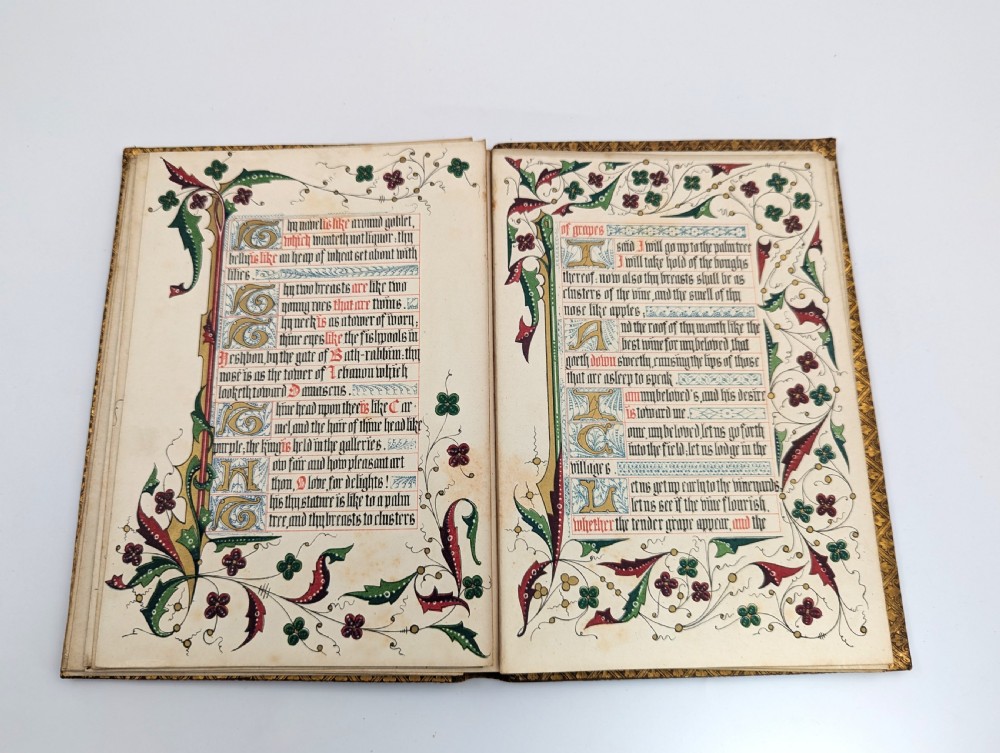 Thy navel is like around goblet,
which wanteth not liquor: thy
belly is like an heap of wheat set about with
lilies.
Thy two breasts are like two
young roes that are twins.
Thy neck is as a tower of ivory;
thine eyes like the fishpools in
Heshbon, by the gate of Bath-rabbim: thy
nose is as the tower of Lebanon which
looketh toward Damascus.
Thine head upon thee is like Car
mel, and the hair of thine head like
purple; the king is held in the galleries.
How fair and how pleasant art
thou, O love for delights!
This thy stature is like to a palm
tree, and thy breasts to clusters
of grapes
I said I will go up to the palm tree
I will take hold of the boughs
thereof: now also thy breasts shall be as
clusters of the vine, and the smell of thy
nose like apples;
And the roof of thy mouth like the
best wine for my beloved, that
goeth down sweetly, causing the lips of those
that are asleep to speak
I am my beloved's, and his desire
is toward me.
Come my beloved let us go forth
into the field; let us lodge in the
villages
Let us get up early to the vineyards
let us see if the vine flourish,
whether the tender grape appear, and the